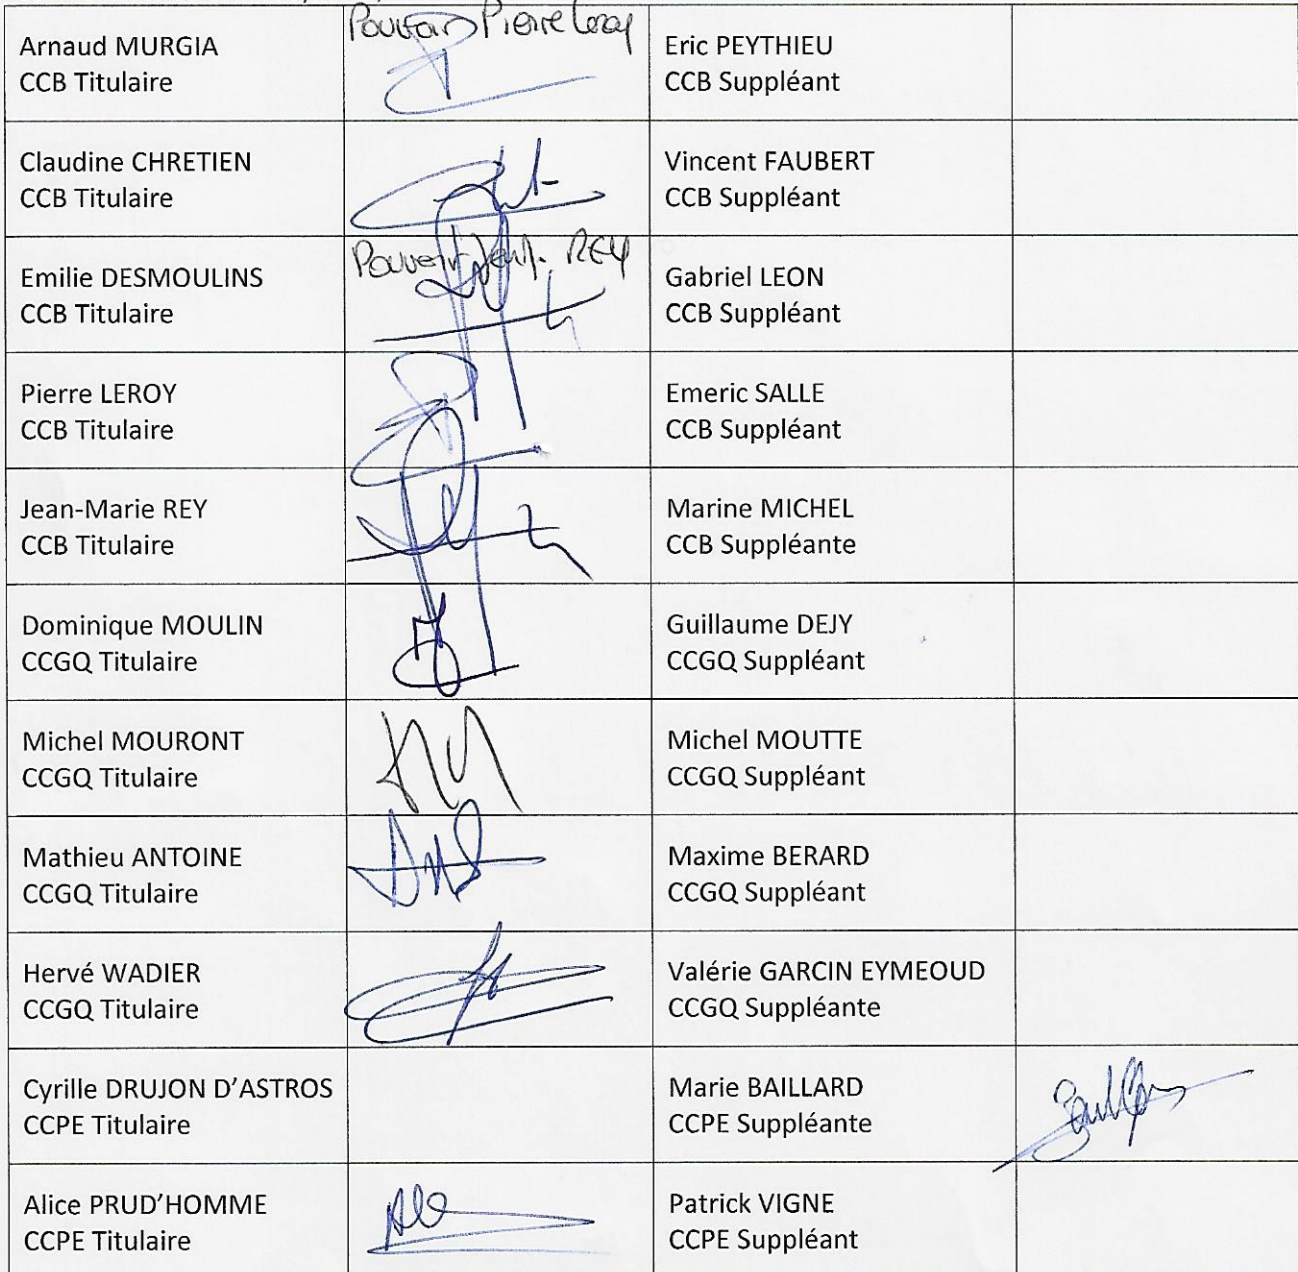 Arnaud MURGIA
CCB Titulaire
Pouvoir Pierre Leroy
Eric PEYTHIEU
CCB Suppléant
Claudine CHRETIEN
CCB Titulaire
Vincent FAUBERT
CCB Suppléant
Emilie DESMOULINS
CCB Titulaire
Pouvoir REY
Gabriel LEON
CCB Suppléant
Pierre LEROY
CCB Titulaire
Emeric SALLE
CCB Suppléant
Jean-Marie REY
CCB Titulaire
Marine MICHEL
CCB Suppléante
Dominique MOULIN
CCGQ Titulaire
Guillaume DEJY
CCGQ Suppléant
Michel MOURONT
CCGQ Titulaire
Michel MOUTTE
CCGQ Suppléant
Mathieu ANTOINE
CCGQ Titulaire
Maxime BERARD
CCGQ Suppléant
Hervé WADIER
CCGQ Titulaire
Valérie GARCIN EYMEOUD
CCGQ Suppléante
Cyrille DRUJON D’ASTROS
CCPE Titulaire
Marie BAILLARD
CCPE Suppléante
Alice PRUD’HOMME
CCPE Titulaire
Patrick VIGNE
CCPE Suppléant